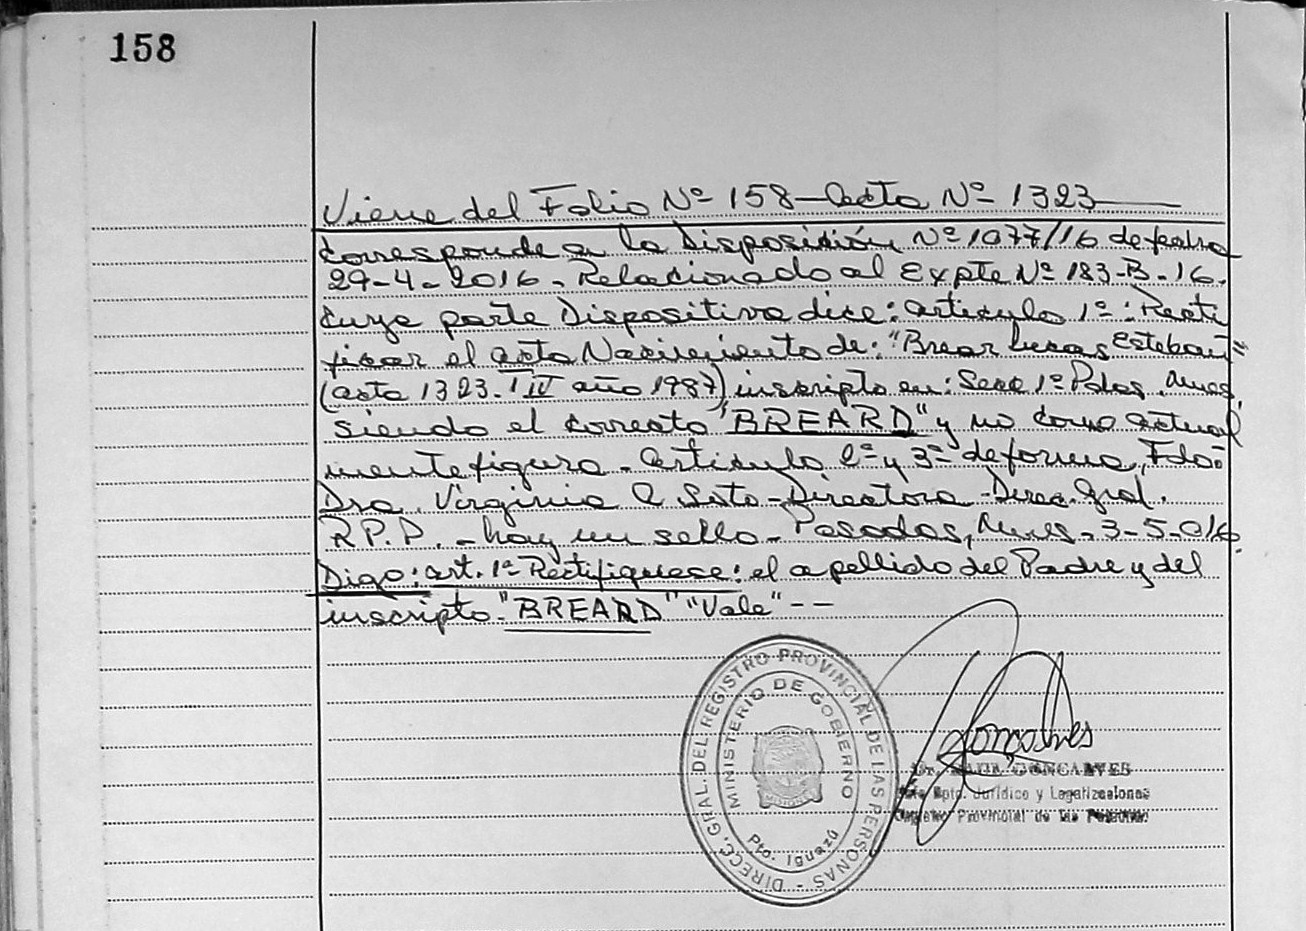 158
Viene del Folio Nº 158 - Acta Nº 1323
Corresponde a la Disposición Nº 1077/16 de fecha
29-4-2016 - Relacionado al Expte Nº 183-B-16.
Cuya parte Dispositiva dice: Articulo 1º: Recti
ficar el acta Nacimiento de: "Brear Lucas Esteban"
(acta 1323. T IV año 1987) inscripto en: Secc 1º Pdas. Mnes.
siendo el correcto "BREARD" y no como actual
mente figura - Articulo 2º y 3º de forma, Fdo:
Dra. Virginia A Soto - Directora - Direc. Gral.
R.P.P. - hay un sello - Posadas, Mnes - 3-5-016.
Digo: art. 1º Rectifiquese: el apellido del Padre y del
inscripto - "BREARD" "Vale" --
DIRECC. GRAL. DEL REGISTRO PROVINCIAL DE LAS PERSONAS -
MINISTERIO DE GOBIERNO
MISIONES
Pto. Iguazú
Gonçalves
GONCALVES
Dpto. Jurídico y Legalizaciones
Provincial de las Personas